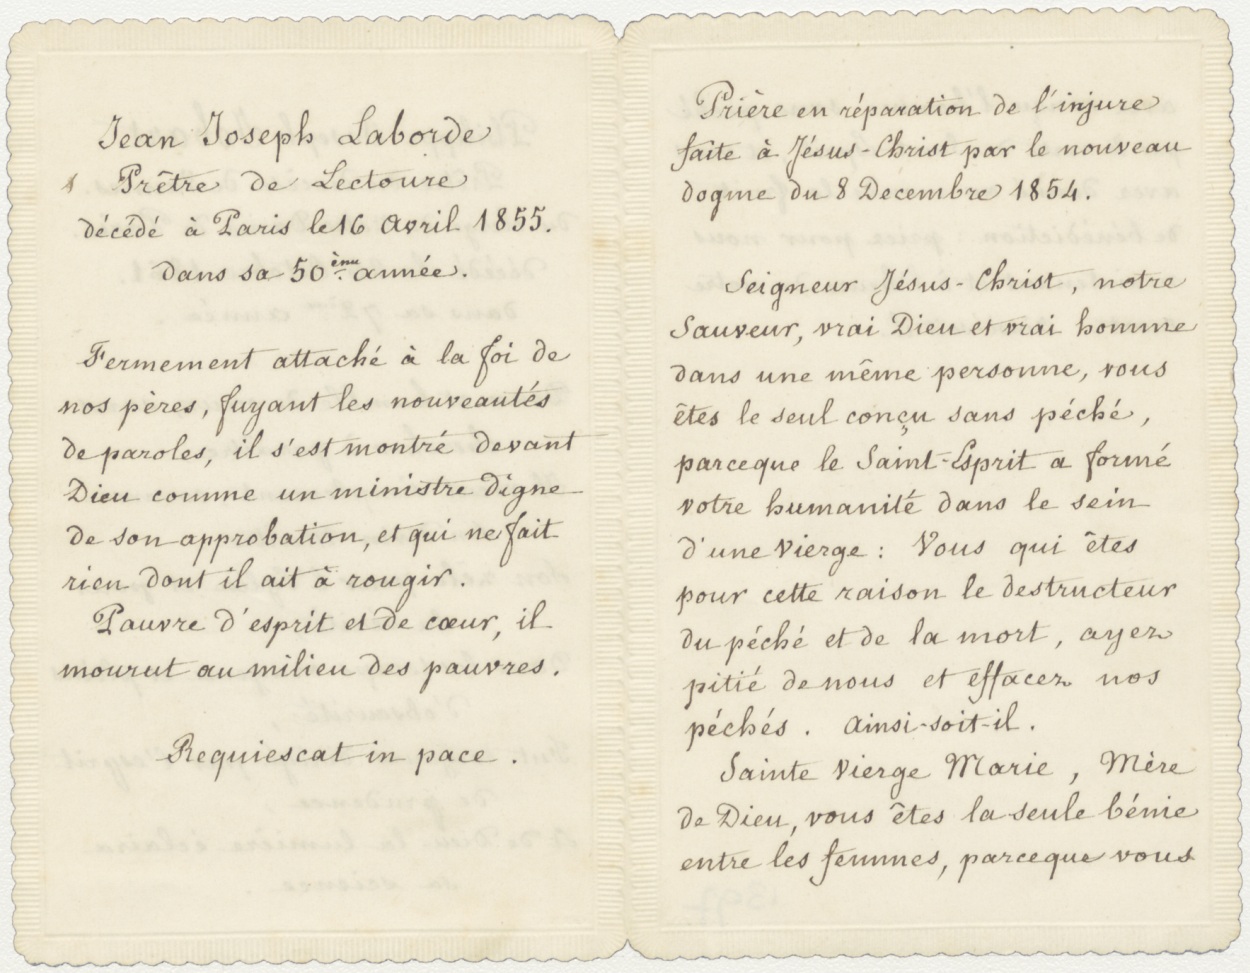 Jean Joseph Laborde
Prêtre de Lectoure
décédé à Paris le 16 Avril 1855.
dans sa 50ème année.
Fermement attaché à la foi de
nos pères, fuyant les nouveautés
de paroles, il s'est montré devant
Dieu comme un ministre digne
de son approbation, et qui ne fait
rien dont il ait à rougir.
Pauvre d'esprit et de cœur, il
mourut au milieu des pauvres.
Requiescat in pace.
Prière en réparation de l'injure
faite à Jésus-Christ par le nouveau
dogme du 8 Décembre 1854.
Seigneur Jésus-Christ, notre
Sauveur, vrai Dieu et vrai homme
dans une même personne, vous
êtes le seul conçu sans péché,
parceque le Saint-Esprit a formé
votre humanité dans le sein
d'une Vierge : Vous qui êtes
pour cette raison le destructeur
du péché et de la mort, ayez
pitié de nous et effacez nos
péchés. Ainsi-soit-il.
Sainte Vierge Marie, Mère
de Dieu, vous êtes la seule bénie
entre les femmes, parceque vous